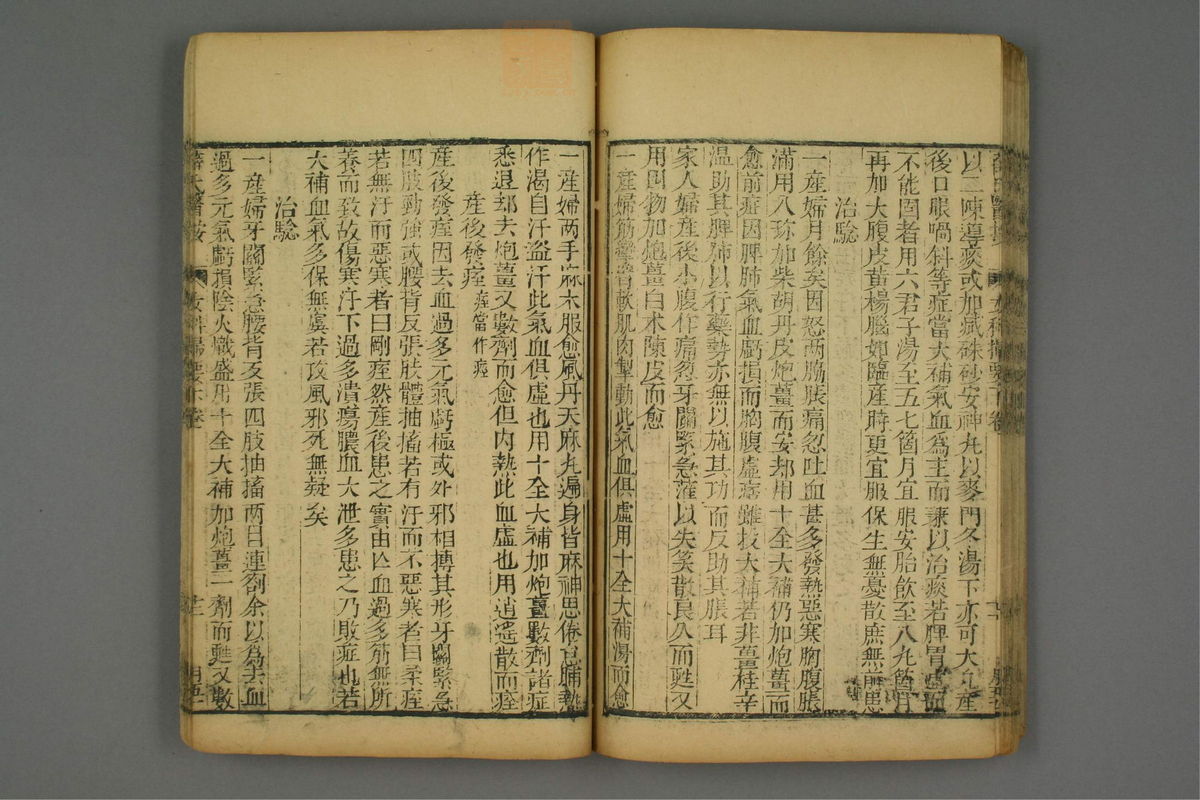 以二陳導痰或加蔵硃砂安神丸以麥門冬湯下亦可大凡產
後口眼喎斜等症當大補氣血為主而兼以治痰若脾胃虛而
不能固者用六君子湯至五七箇月宜服安胎飲至八九箇月
再加大腹皮黃楊腦如臨產時更宜服保生無憂散庶無前患
治驗
一產婦月餘矣因怒兩脇脹痛忽吐血甚多發熱惡寒胸腹脹
滿用八珍加柴胡丹皮炮薑而安却用十全大補仍加炮薑而
愈前症因脾肺氣血虧損而胸腹虛痞雖投大補若非薑桂辛
温助其脾肺以行藥勢亦無以施其功而反助其脹耳
家人婦產後小腹作痛忽牙關緊急灌以失笑散良久而甦又
用四物加炮薑白术陳皮而愈
一產婦筋攣臂軟肌肉掣動此氣血俱虛用十全大補湯而愈
一產婦两手麻木服愈風丹天麻丸遍身皆麻神思倦怠晡熱
作渴自汗盜汗此氣血俱虛也用十全大補加炮薑數劑諸症
悉退却去炮薑又數劑而愈但内熱此血虛也用逍遙散而痊
產後發痓 痓當作痙
產後發痓因去血過多元氣虧極或外邪相搏其形牙關緊急
四肢勁強或腰背反張肢體抽搐若有汗而不惡寒者曰柔痓
若無汗而惡寒者曰剛痓然產後患之實由亾血過多筋無所
養而致故傷寒汗下過多潰瘍膿血大泄多患之乃敗症也若
大補血氣多保無虞若攻風邪死無疑矣
治驗
一產婦牙關緊急腰背反張四肢抽搐两目連劄余以為去血
過多元氣虧損陰火熾盛用十全大補加炮薑一劑而甦又數